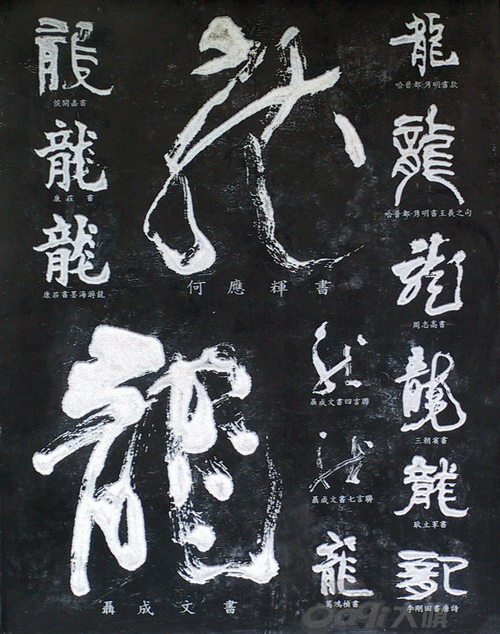 龍
侯開嘉書
龍
康莊 書
龍
康莊書墨海游龍
龍
何應輝書
龍
聶成文書
龍
聶成文書四言聯
龍
聶成文書七言聯
龍
龍
哈普都·雋明書款
龍
哈普都·雋明書王羲之句
龍
周志高書
龍
龍
耿立軍書
龍
李剛田書唐詩